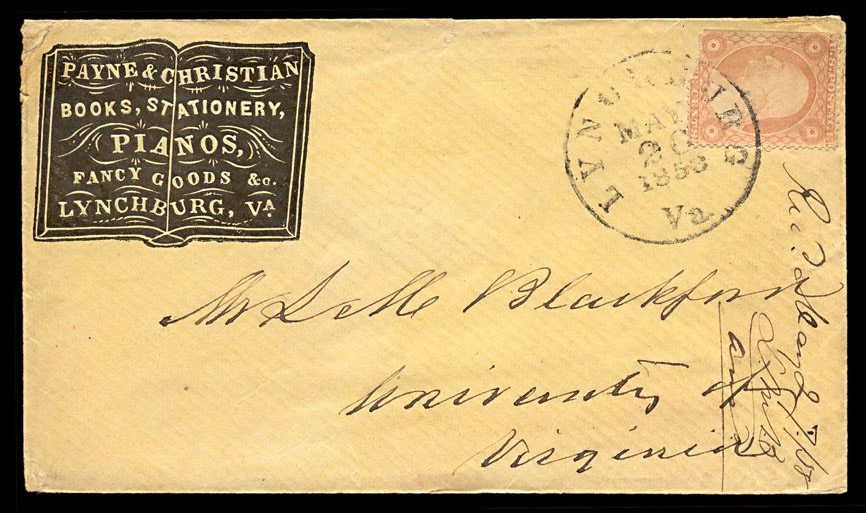 PAYNE & CHRISTIAN
BOOKS, STATIONERY,
PIANOS,
FANCY GOODS &c.
LYNCHBURG, VA
LYNCHBURG
MAY
20
1858
Va
Mr L M Blackford
University of
Virginia